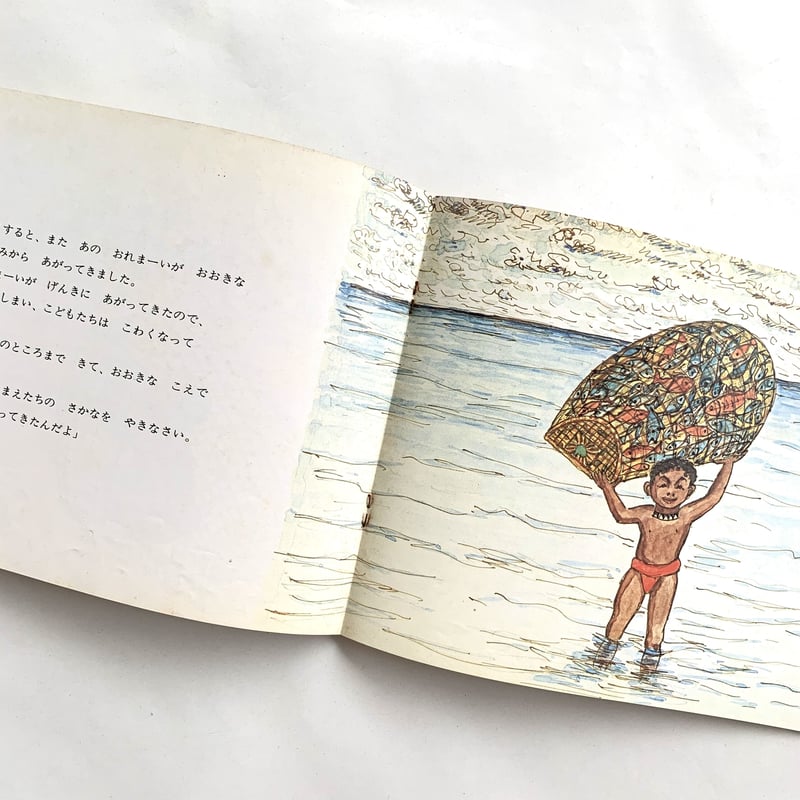 すると、また あの おれまーいが おおきな
みから あがってきました。
ーいが げんきに あがってきたので、
しまい、こどもたちは こわくなって
のところまで きて、おおきな こえで
まえたちの さかなを やきなさい。
ってきたんだよ」